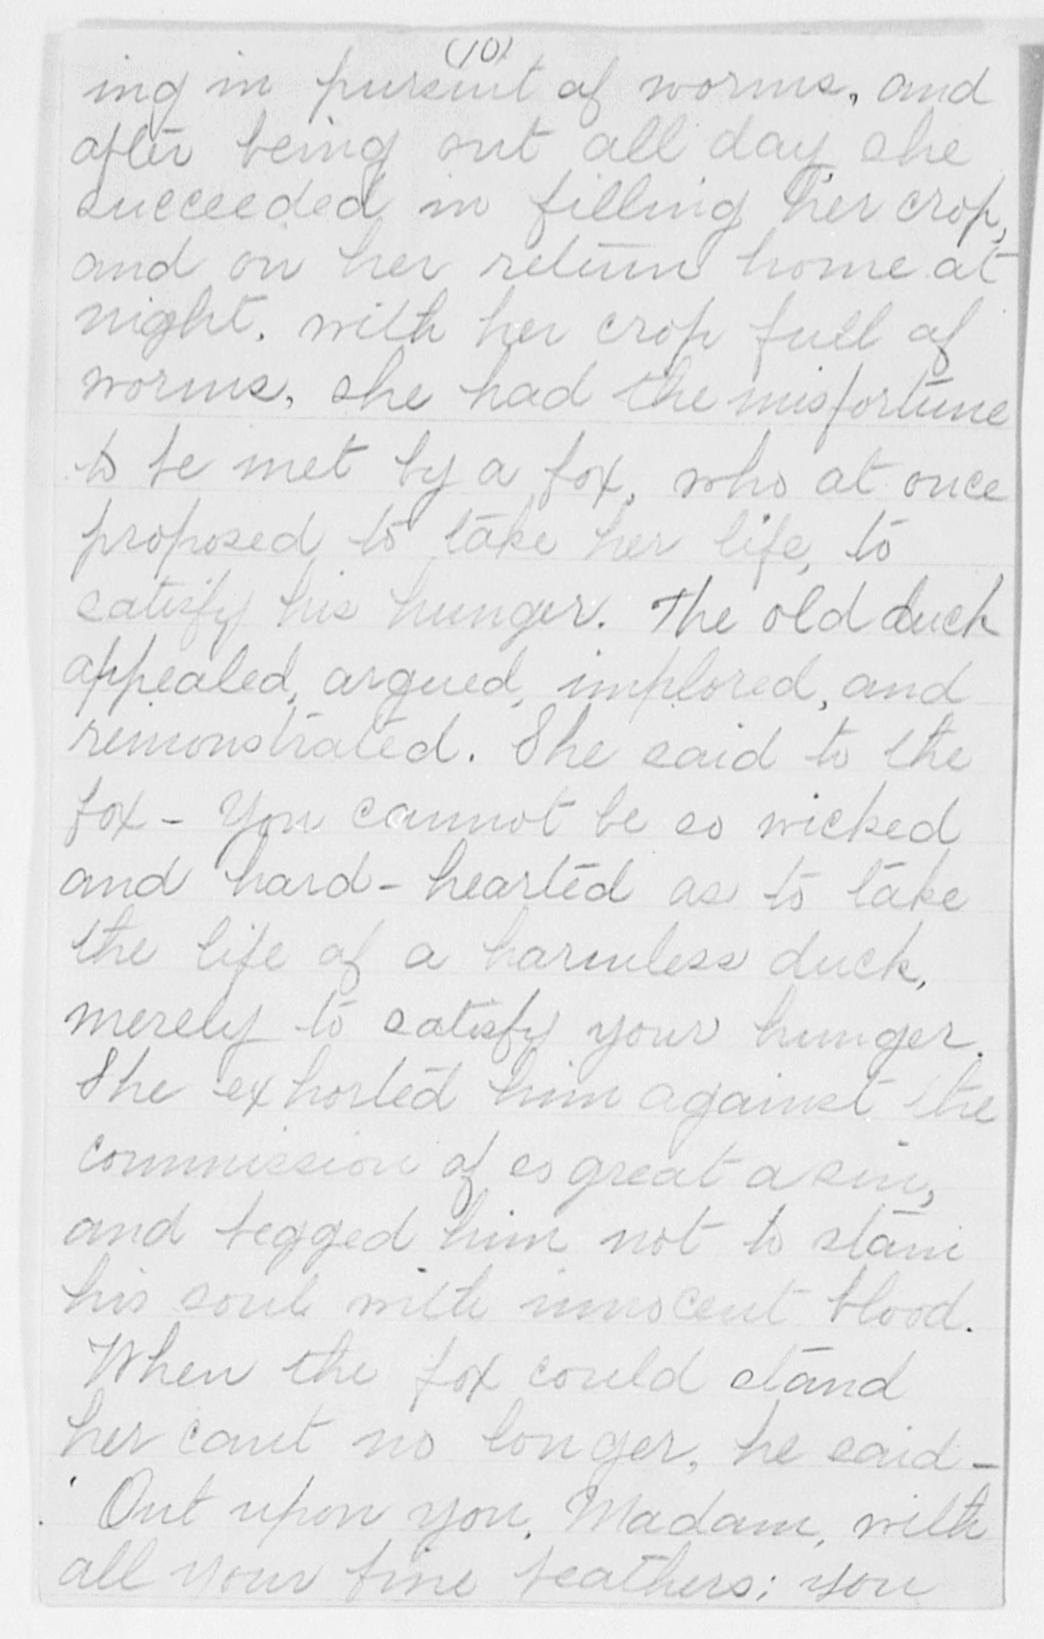 (10)
ing in pursuit of worms, and
after being out all day she
succeeded in filling her crop,
and on her return home at
night, with her crop full of
worms, she had the misfortune
to be met by a fox, who at once
proposed to take her life, to
satisfy his hunger. The old duck
appealed, argued, implored, and
remonstrated. She said to the
fox - You cannot be so wicked
and hard-hearted as to take
the life of a harmless duck,
merely to satisfy your hunger.
She exhorted him against the
commission of so great a sin,
and begged him not to stain
his soul with innocent blood.
When the fox could stand
her cant no longer, he said -
'Out upon you, Madam, with
all your fine feathers; you